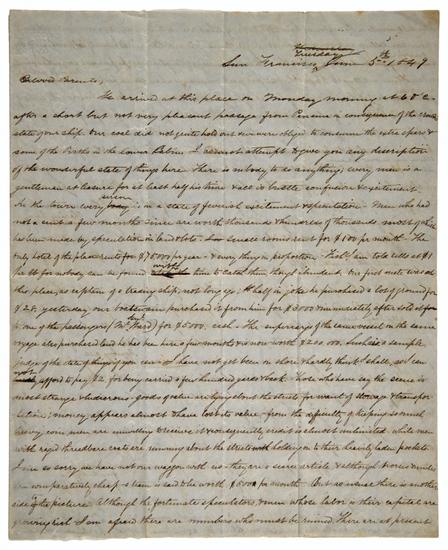 Tuesday
San Francisco June 5th 1849
Dear Parents,
We arrived at this place on Monday morning at 6 o'c
after a short but not very pleasant passage from Panama in consequence of the
state of our ship. Our coal did not quite hold out & we were obliged to consume the extra spars &
some of the Berths in the Lower Cabin. I cannot attempt to give you any description
of the wonderful state of things here. There is nobody to do anything; every man is a
gentleman at leisure for at least half his time & all is bustle confusion & excitement.
In the town every is in a state of feverish excitement & speculation. Men who had
not a cent a few months since are worth thousands & hundreds of thousands most of which
has been made by speculation in land & lots. Small rooms rent for $100 per month. The
only hotel of the place rents for $ per year & every thing in proportion. Fresh are told sells at $1
per lb for nobody can be found to catch them though abundant. Our first mate was at
this place, as captain of a trading ship, not long ago. Half in joke he purchased a lot of ground for
$28. yesterday our purchased it from him for $3000 & immediately after sold it for
to one of the passengers (Mr Ward) for $5000. cash. The supercargo of the same vessel on the same
voyage also purchased land he has been here a few months & is now worth $200.000. Such is a sample
judge of the state of things if you can. I have not yet been on shore & hardly think I shall, as I can
not afford to pay $2 for being carried a few hundred yards & back. Those who have say the scene is
most strange & ludicrous, goods of value are lying about the streets for want of storage & transpor
tation; money appears almost to have lost its value - from the difficulty of keeping so much
heavy coin men are unwilling to receive it & consequently credit is almost unlimited while men
with ragged threadbare coats are running about the streets holding on to their heavily laden pockets.
I am so sorry we have not our waggon with us - they are a scarce article & although horses & mules
are comparatively cheap a team is said to be worth $ per month. But of course there is another
side of the picture. Although the fortunate speculators, & men whose labor is their capital are
growing rich I am afraid there are numbers who must be ruined. There are at present